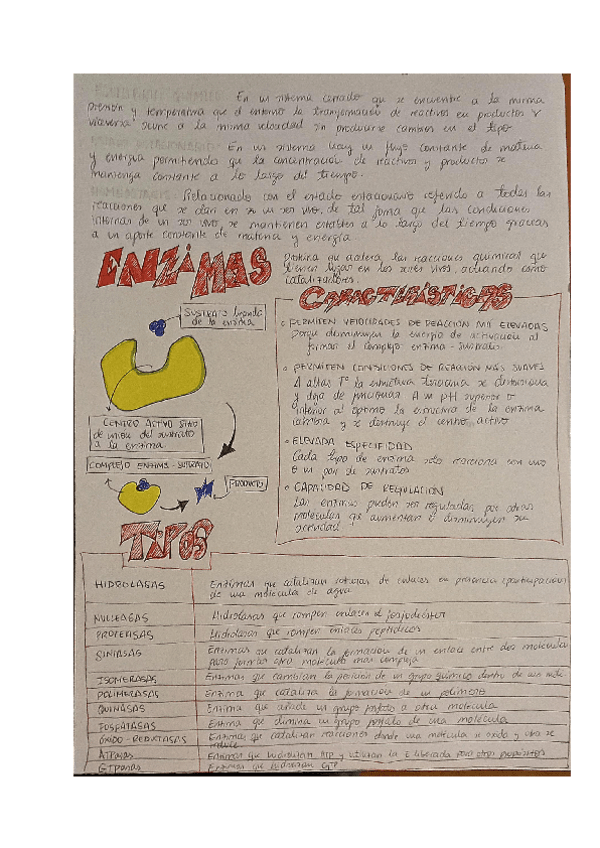 En un sistema cerrado que se encuentre a la misma
presión y temperatura que el entorno la transformación de reactivos en productos y
viceversa ocurre a la misma velocidad sin producirse cambios en el tipo
En un sistema hay un flujo constante de materia
y energía permitiendo que la concentración de reactivos y productos se
mantenga constante a lo largo del tiempo.
Relacionado con el estado estacionario referido a todas las
reacciones que se dan en un ser vivo, de tal forma que las condiciones
internas de un ser vivo, se mantienen estables a lo largo del tiempo gracias
a un aporte constante de materia y energía.
ENZIMAS
Proteína que acelera las reacciones químicas que
tienen lugar en los seres vivos, actuando como
catalizadores.
CARACTERÍSTICAS
SUSTRATO
de la enzima
PERMITEN VELOCIDADES DE REACCIÓN MUY ELEVADAS
Porque disminuyen la energía de activación al
formar el complejo enzima-sustrato.
PERMITEN CONDICIONES DE REACCIÓN MÁS SUAVES
A altas Tª la estructura terciaria se distorsiona
y deja de funcionar. A un pH superior o
inferior al óptimo la estructura de la enzima
cambia y se destruye el centro activo
ELEVADA ESPECIFIDAD
Cada tipo de enzima sólo reacciona con uno
o un par de sustratos
CAPACIDAD DE REGULACIÓN
Las enzimas pueden ser reguladas por otras
moléculas que aumentan o disminuyen su
actividad
CENTRO ACTIVO SITIO
de unión del sustrato
a la enzima
COMPLEJO ENZIMA-SUSTRATO
PRODUCTO
TIPOS
HIDROLASAS Enzimas que catalizan roturas de enlaces en presencia (participación)
de una molécula de agua
NUCLEASAS Hidrolasas que rompen enlaces fosfodiéster
PROTEASAS Hidrolasas que rompen enlaces peptídicos
SINTASAS Enzimas que catalizan la formación de un enlace entre dos moléculas
para formar otra molécula más compleja
ISOMERASAS Enzimas que cambian la posición de un grupo químico dentro de
POLIMERASAS Enzima que cataliza la formación de un polímero
QUINASAS Enzima que añade un grupo fosfato a otra molécula
FOSFATASAS Enzima que elimina un grupo fosfato de una molécula
ÓXIDO-REDUCTASAS Enzimas que catalizan reacciones donde una molécula se oxida y otra se
reduce
ATPasas Enzimas que hidrolizan ATP y utilizan la E liberada para otros propósitos
GTPasas Enzimas que hidrolizan GTP